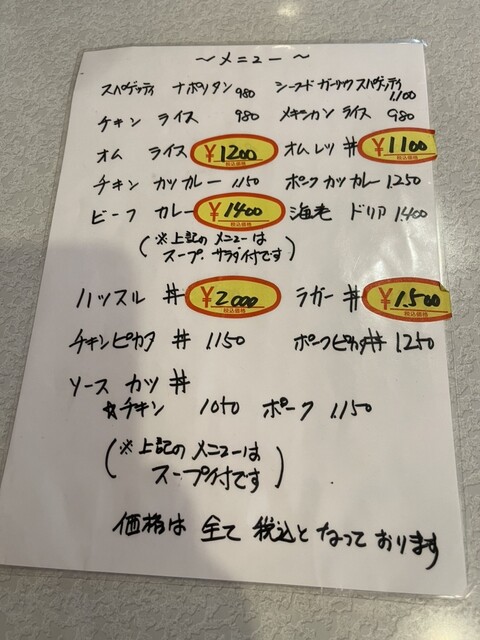 ～メニュー～
スパゲッティ ナポリタン 980 シーフードガーリックスパゲッティ 1,100
チキン ライス 980 メキシカン ライス 980
オム ライス ¥1200 税込価格 オムレツ 丼 ¥1100 税込価格
チキン カツカレー 1150 ポーク カツ カレー 1250
ビーフ カレー ¥1400 税込価格 海老 ドリア 1400
(※上記の メニューは
スープ、サラダ付です)
ハッスル 丼 ¥2000 税込価格 ラガー 丼 ¥1,500 税込価格
チキンピカタ 丼 1150 ポークピカタ丼 1250
ソース カツ 丼
☆チキン 1050 ポーク 1,150
(※上記の メニューは
スープ付です)
価格は 全て 税込と なって おります